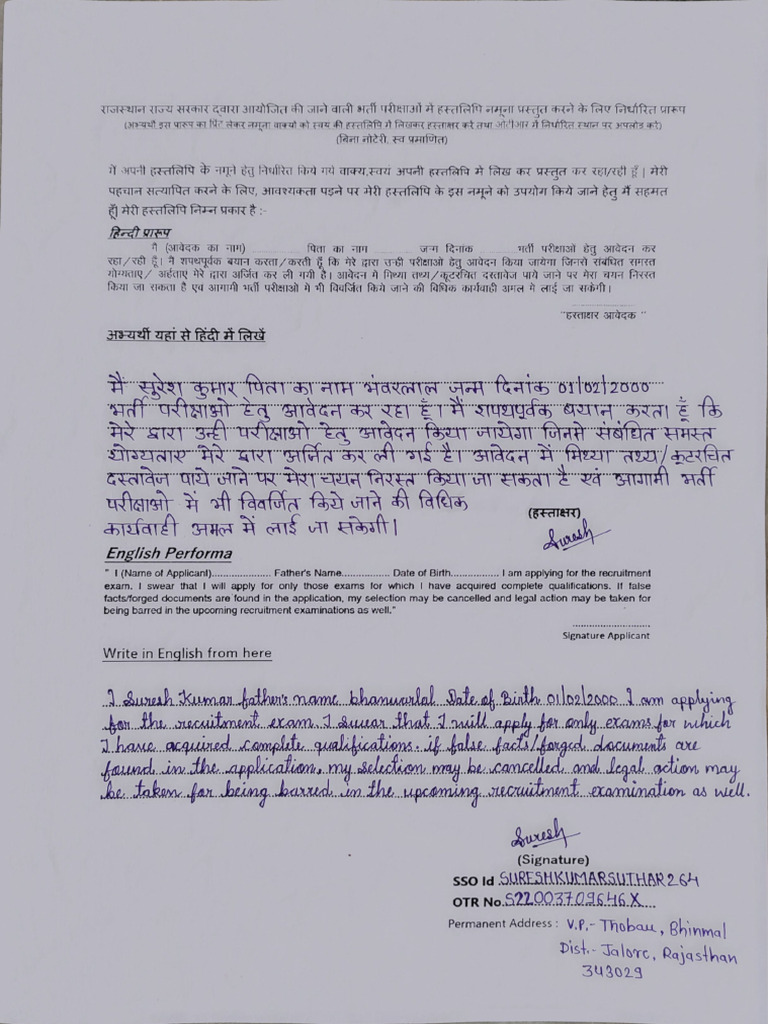 राजस्थान राज्य सरकार द्वारा आयोजित की जाने वाली भर्ती परीक्षाओं में हस्तलिपि नमूना प्रस्तुत करने के लिए निर्धारित प्रारूप
(अभ्यर्थी इस प्रारूप का प्रिंट लेकर नमूना वाक्यों को स्वयं की हस्तलिपि में लिखकर हस्ताक्षर करे तथा ओटीआर में निर्धारित स्थान पर अपलोड करे)
(बिना नोटेरी, स्व प्रमाणित)
में अपनी हस्तलिपि के नमूने हेतु निर्धारित किये गये वाक्य,स्वयं अपनी हस्तलिपि मे लिख कर प्रस्तुत कर रहा/रही हूँ | मेरी
पहचान सत्यापित करने के लिए, आवश्यकता पड़ने पर मेरी हस्तलिपि के इस नमूने को उपयोग किये जाने हेतु मैं सहमत
हूँ| मेरी हस्तलिपि निम्न प्रकार है :-
हिन्दी प्रारूप
मै (आवेदक का नाम) ............... पिता का नाम ............... जन्म दिनांक ............ भर्ती परीक्षाओं हेतु आवेदन कर
रहा/रही हूँ। मै शपथपूर्वक बयान करता/करती हूँ कि मेरे द्वारा उन्ही परीक्षाओ हेतु आवेदन किया जायेगा जिनसे संबंधित समस्त
योग्यताए/ अर्हताए मेरे द्वारा अर्जित कर ली गयी है। आवेदन मे मिथ्या तथ्य/कूटरचित दस्तावेज पाये जाने पर मेरा चयन निरस्त
किया जा सकता है एवं आगामी भर्ती परीक्षाओ मे भी विवर्जित किये जाने की विधिक कार्यवाही अमल मे लाई जा सकेगी।
"हस्ताक्षर आवेदक "
अभ्यर्थी यहां से हिंदी में लिखें
मैं सुरेश कुमार पिता का नाम भंवरलाल जन्म दिनांक 01/02/2000
भर्ती परीक्षाओ हेतु आवेदन कर रहा हूँ। मैं शपथपूर्वक बयान करता हूँ कि
मेरे द्वारा उन्ही परीक्षाओ हेतु आवेदन किया जायेगा जिनमे संबंधित समस्त
योग्यताए मेरे द्वारा अर्जित कर ली गई है। आवेदन में मिथ्या तथ्य/कूटरचित
दस्तावेज पाये जाने पर मेरा चयन निरस्त किया जा सकता है एवं आगामी भर्ती
परीक्षाओ में भी विवर्जित किये जाने की विधिक
(हस्ताक्षर)
कार्यवाही अमल में लाई जा सकेगी।
Suresh
English Performa
" I (Name of Applicant)................... Father's Name............... Date of Birth.............. I am applying for the recruitment
exam. I swear that I will apply for only those exams for which I have acquired complete qualifications. If false
facts/forged documents are found in the application, my selection may be cancelled and legal action may be taken for
being barred in the upcoming recruitment examinations as well."
Signature Applicant
Write in English from here
I Suresh Kumar father's name bhanwarlal Date of Birth 01/02/2000 I am applying
for the recruitment exam. I swear that I will apply for only exams for which
I have acquired complete qualifications. if false facts/forged documents are
found in the application, my selection may be cancelled and legal action may
be taken for being barred in the upcoming recruitment examination as well.
Suresh
(Signature)
SSO Id SURESHKUMARSUTHAR264
OTR No. S22003709646X
Permanent Address : V.P.- Thobau, Bhinmal
Dist.- Jalore, Rajasthan
343029